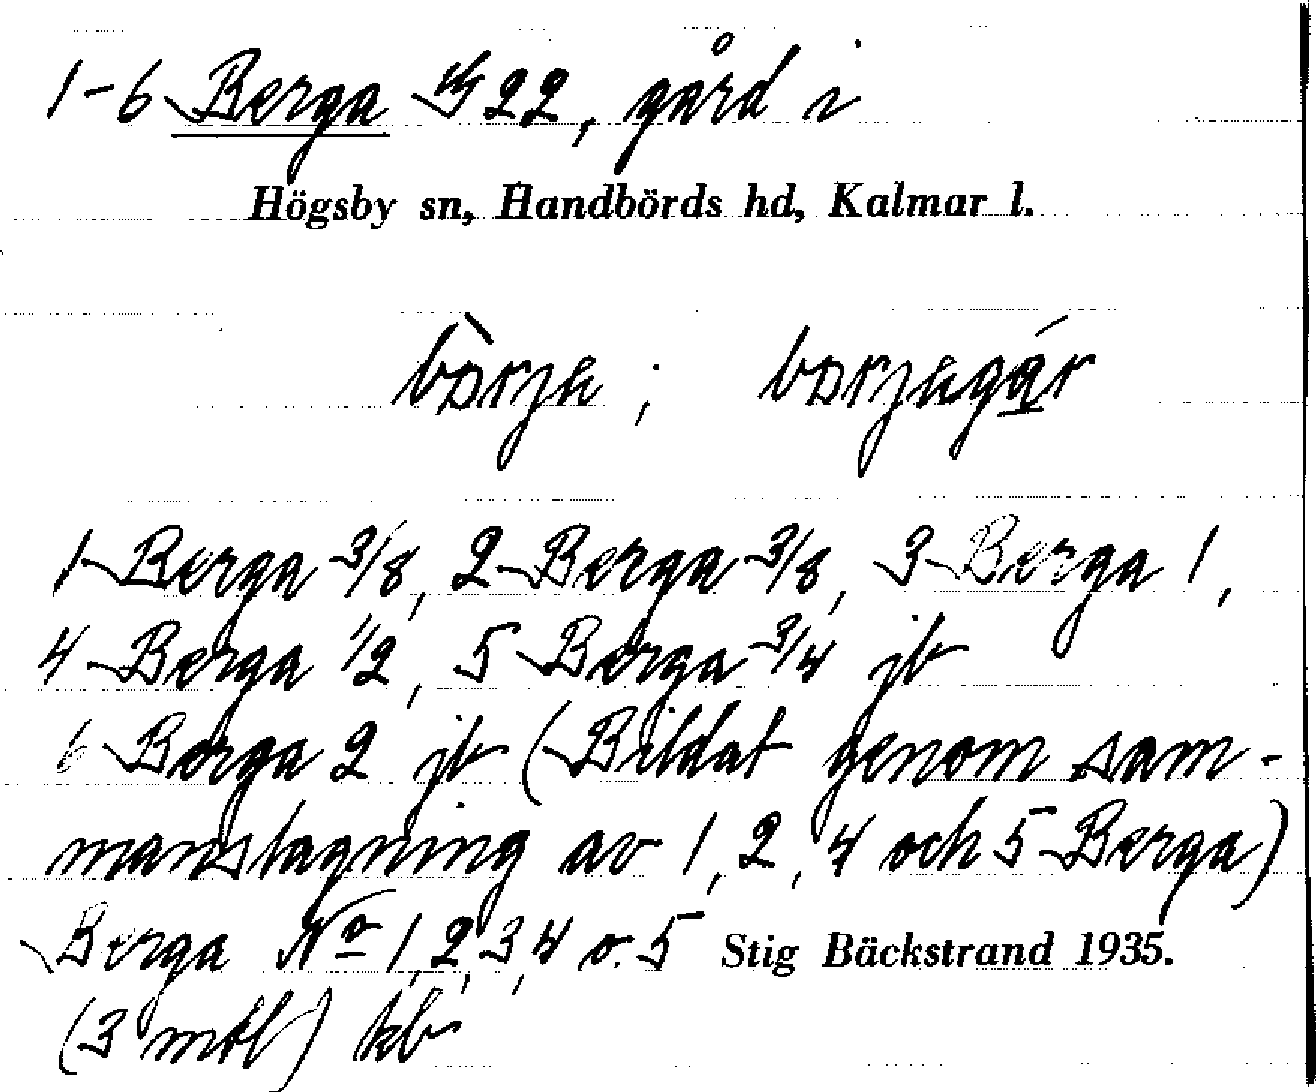 1-6 Berga 4/5 22, gård i
Högsby sn, Handbörds hd, Kalmar l.
1 Berga 3/8, 2 Berga 3/8, 3 Berga 1,
4 Berga 1/2, 5 Berga 3/4 jb
6 Berga 2 jb (Bildat genom sam-
manslagning av 1, 2, 4 och 5 Berga)
Berga No 1, 2, 3, 4 o. 5 Stig Bäckstrand 1935.
(3 mtl) kb